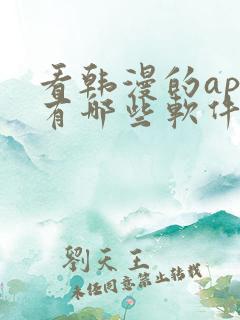 看韩漫的ap
有哪些软件
刘天王
未经同意禁止转载